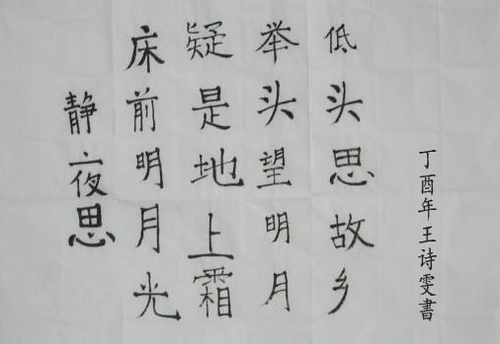 静夜思
床前明月光
疑是地上霜
举头望明月
低头思故乡
丁酉年王诗雯書